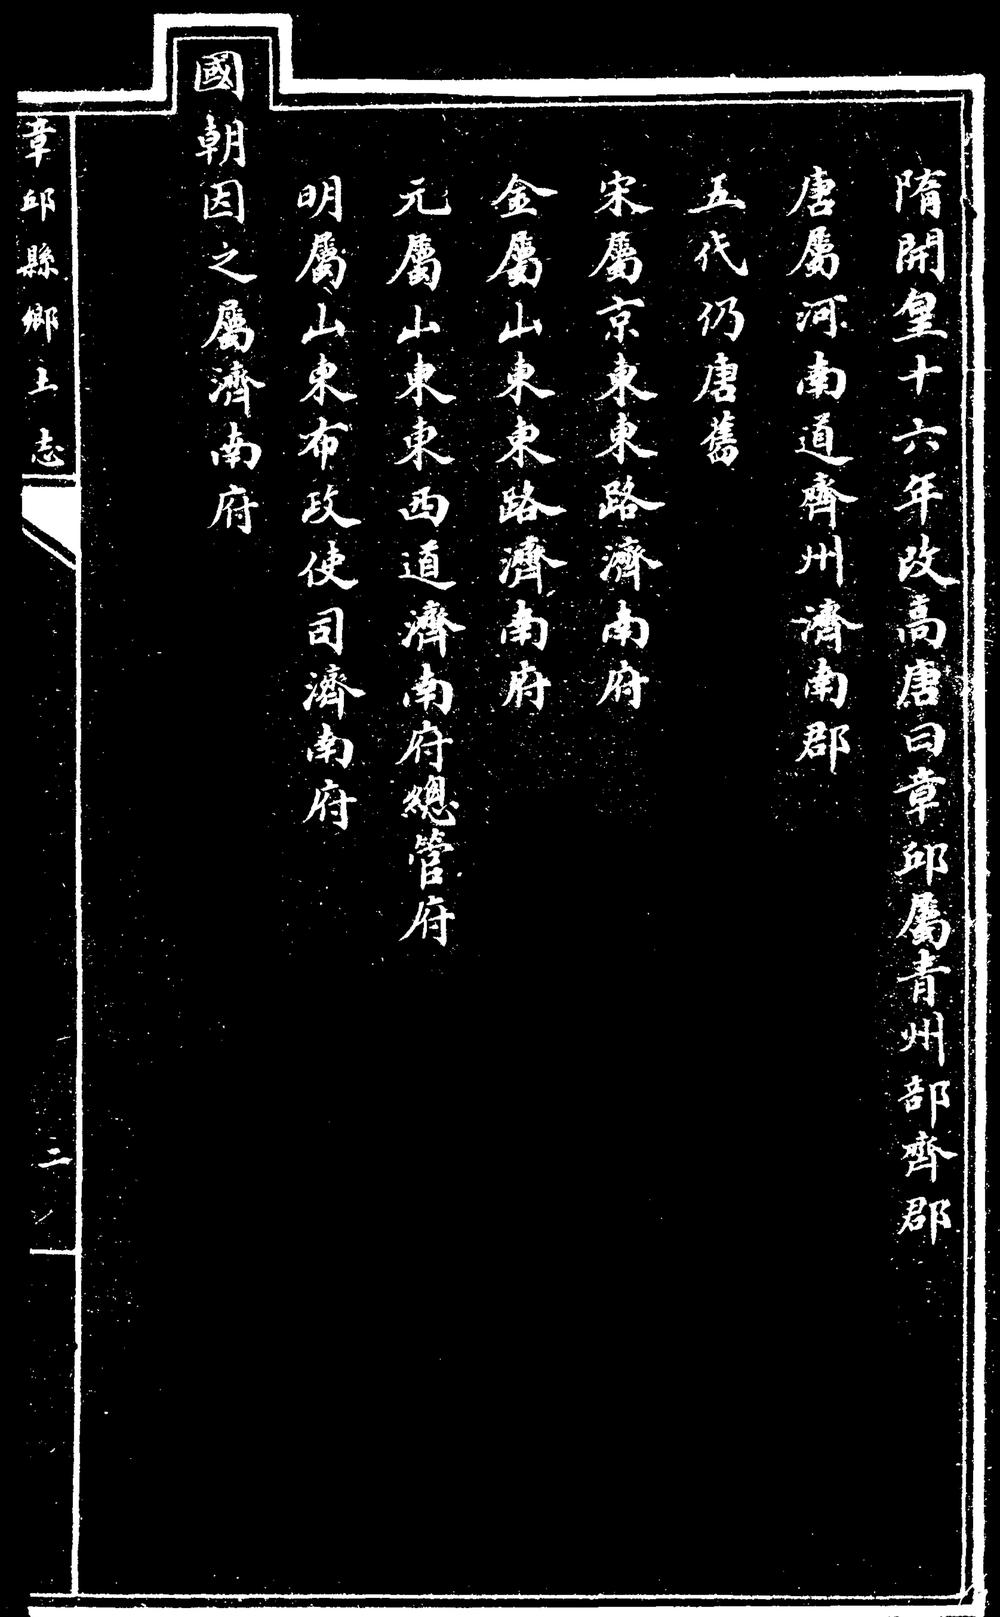 隋開皇十六年改高唐曰章邱屬青州部齊郡
唐屬河南道齊州濟南郡
五代仍唐舊
宋屬京東東路濟南府
金屬山東東路濟南府
元屬山東東西道濟南府總管府
明屬山東布政使司濟南府
國朝因之屬濟南府
章邱縣鄉土志
二